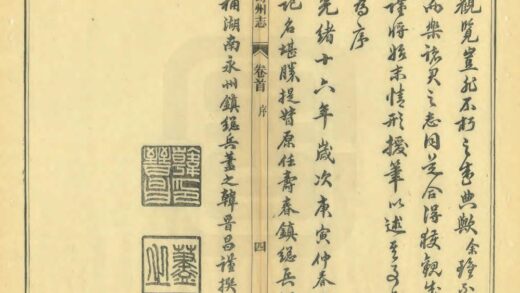 觀覽豈非不朽之盛典歟余雖不
而樂諸君之志同道合得獲觀其
謹將始末情形援筆以述其
為序
光緒十六年歲次庚寅仲春
州志
卷首
序
四
記名堪勝提督原任壽春鎮總兵
補湖南永州鎮總兵蓋之韓晉昌謹撰
韓印晉昌
蓋之